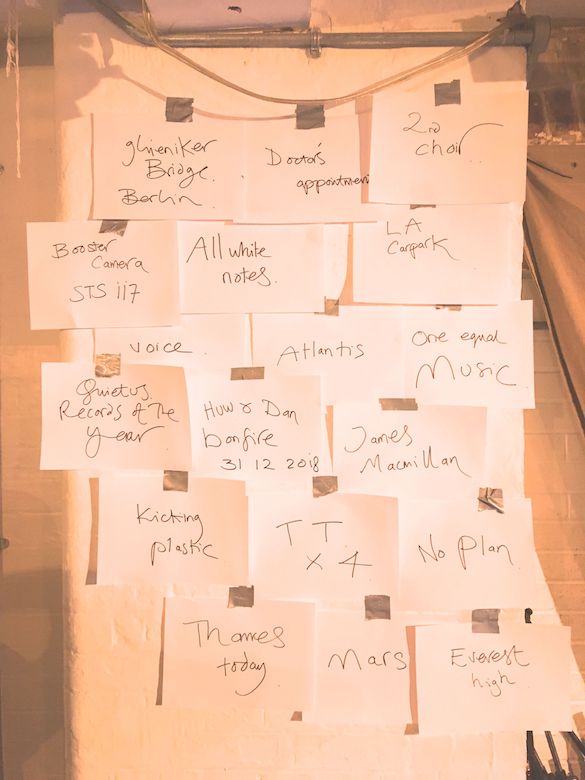 ghieniker
Bridge
Berlin
Doctor's
appointment
2nd
choir
Booster
Camera
STS 117
All white
notes.
LA
Carpark
voice
Atlantis
One equal
Music
Quietus
Records of The
year
Huw & Dan
bonfire
31 12 2018
James
Macmillan
Kicking
plastic
TT
x 4
No Plan
Thames
today
Mars
Everest
high